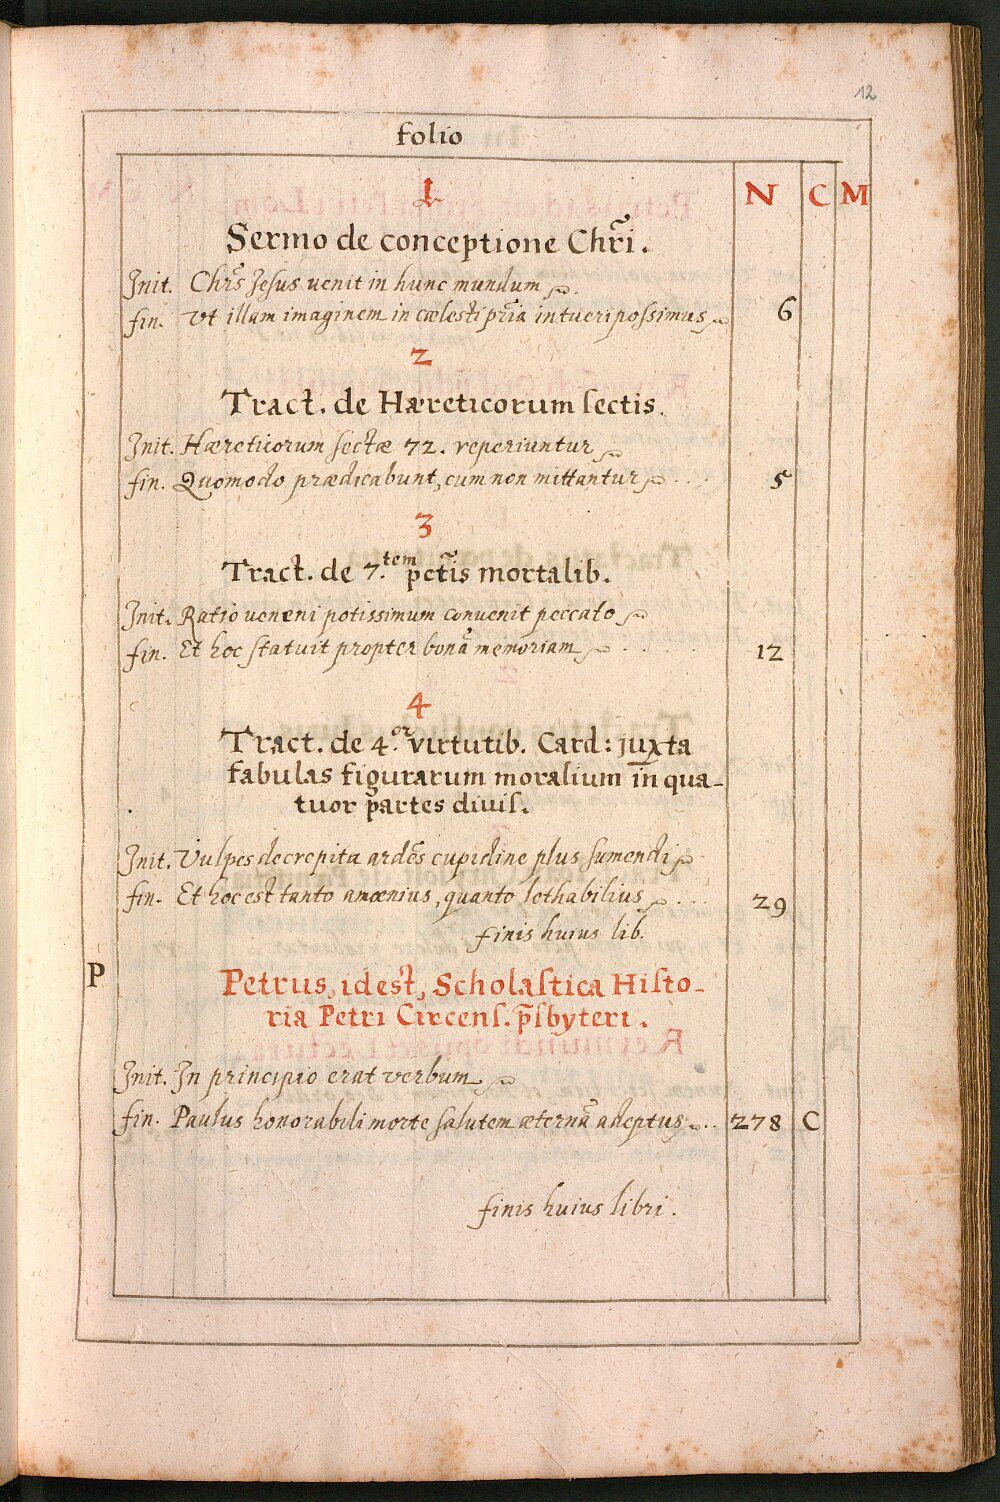 12
folio
1 N C M
Sermo de conceptione Chr̃i.
Init. Chr̃s Jesus uenit in hunc mundum
fin. Vt illam imaginem in cælesti pr̃ia intueri possimus 6
2
Tract. de Hæreticorum sectis.
Init. Hæreticorum sectæ 72. reperiuntur
fin. Quomodo prædicabunt, cum non mittantur .... 5
3
Tract. de 7.tem pctis̃ mortalib.
Init. Ratio ueneni potissimum conuenit peccato
fin. Et hoc statuit propter bonã memoriam 12
4
Tract. de 4.or virtutib. Card: juxta
fabulas figurarum moralium in qua-
tuor partes diuis.
Init. Vulpes decrepita ardẽs cupidine plus sumendi
fin. Et hoc est tanto amœnius, quanto lethabilius .... 29
finis huius lib.
P Petrus, idest, Scholastica Histo-
ria Petri Circens. p̃sbyteri.
Init. In principio erat verbum
fin. Paulus honorabili morte salutem æternã adeptus .. 278 C
finis huius libri.